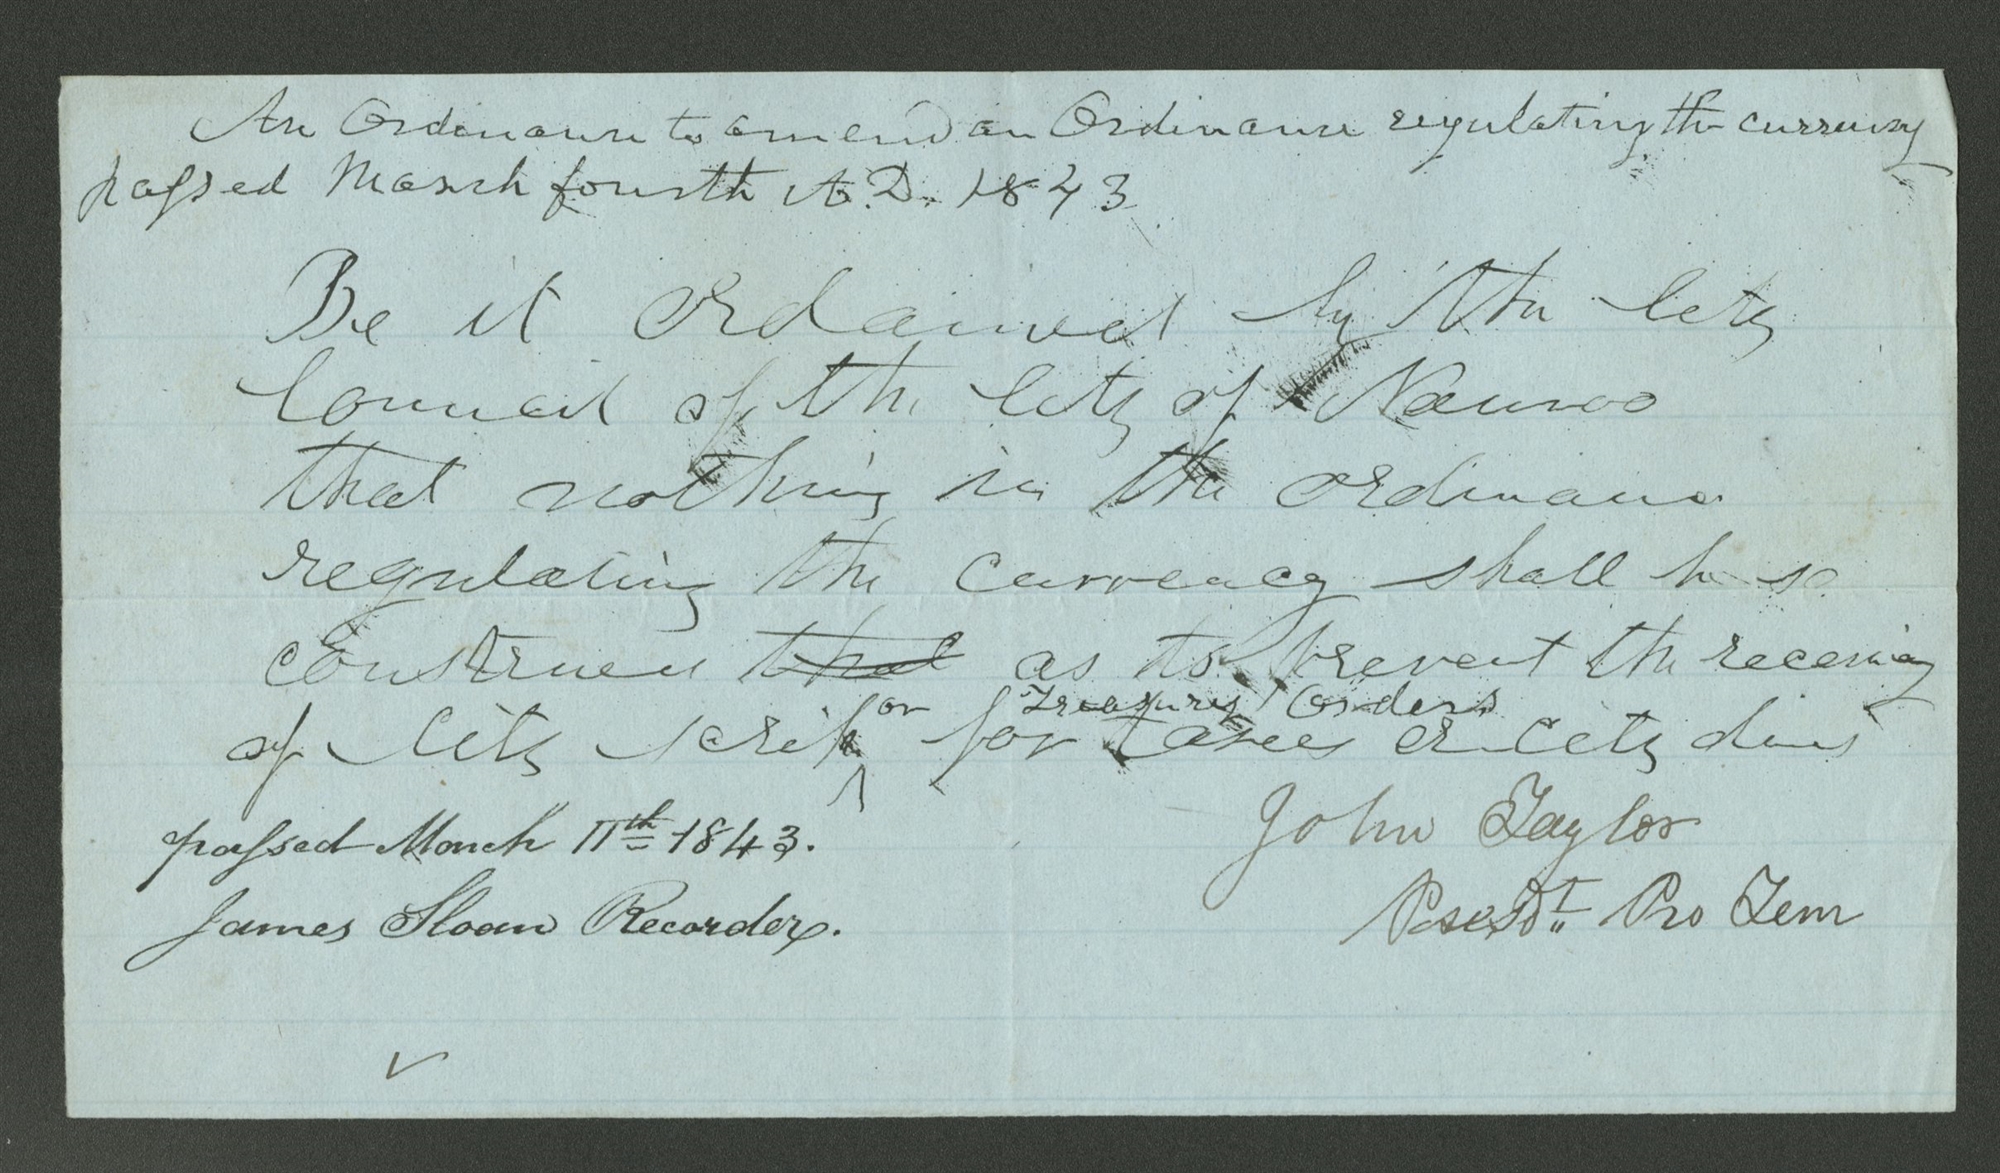 An Ordinance to amend an Ordinance regulating the currency
passed March fourth A.D. 1843
Be it ordained by the City
Council of the City of Nauvoo
that nothing in the ordinance
regulating the currency shall be so
construed that as to prevent the receiving
or Treasury Orders
of City scrip ^ for taxes or City dues
passed March 11th 1843.
John Taylor
James Sloan Recorder.
Presdt Pro Tem